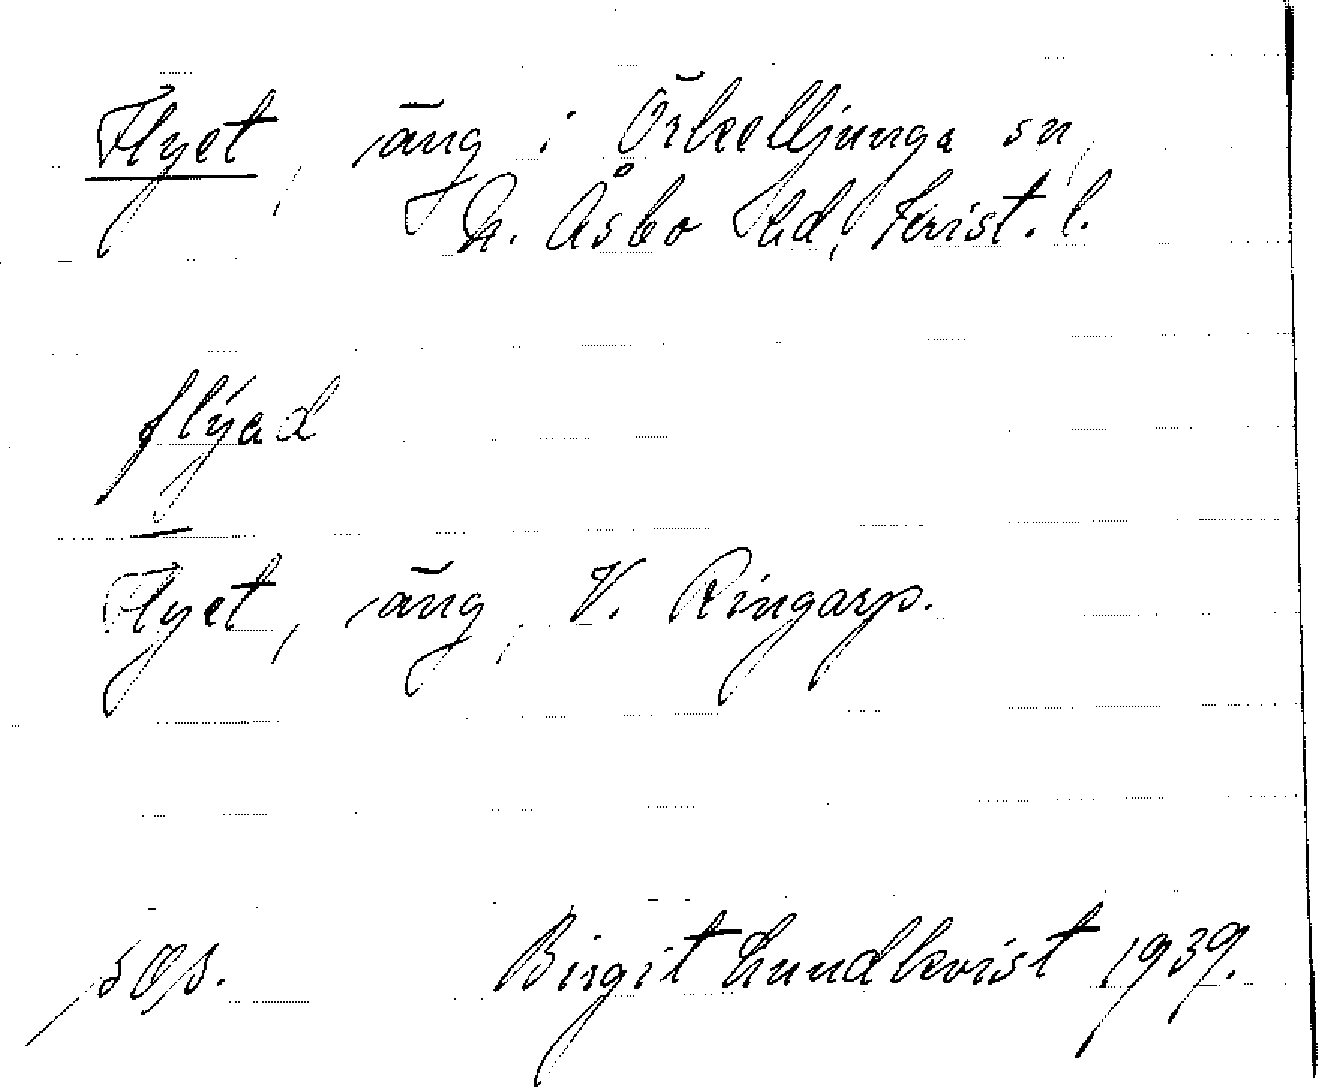 Flyet, äng i Örkelljunga sn,
N. Åsbo hd, Krist. l.
flýad
Flyet, äng, V. Ringarp.
Birgit Lundkvist 1939.